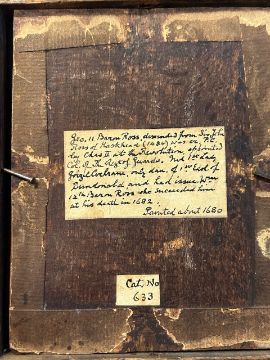 Geo. 11 Baron Ross descended from Sir John
Ross of Hawkhead (1489) was cr. Pc
by Chas II at the Revolution appointed
Col. of the Regt of Guards. Md 1st Lady
Grizil Cochrane, only dau. of 1st Earl of
Dundonald and had issue. Wm
12th Baron Ross who succeeded him
at his death in 1682.
Painted about 1680
Cat. No
633